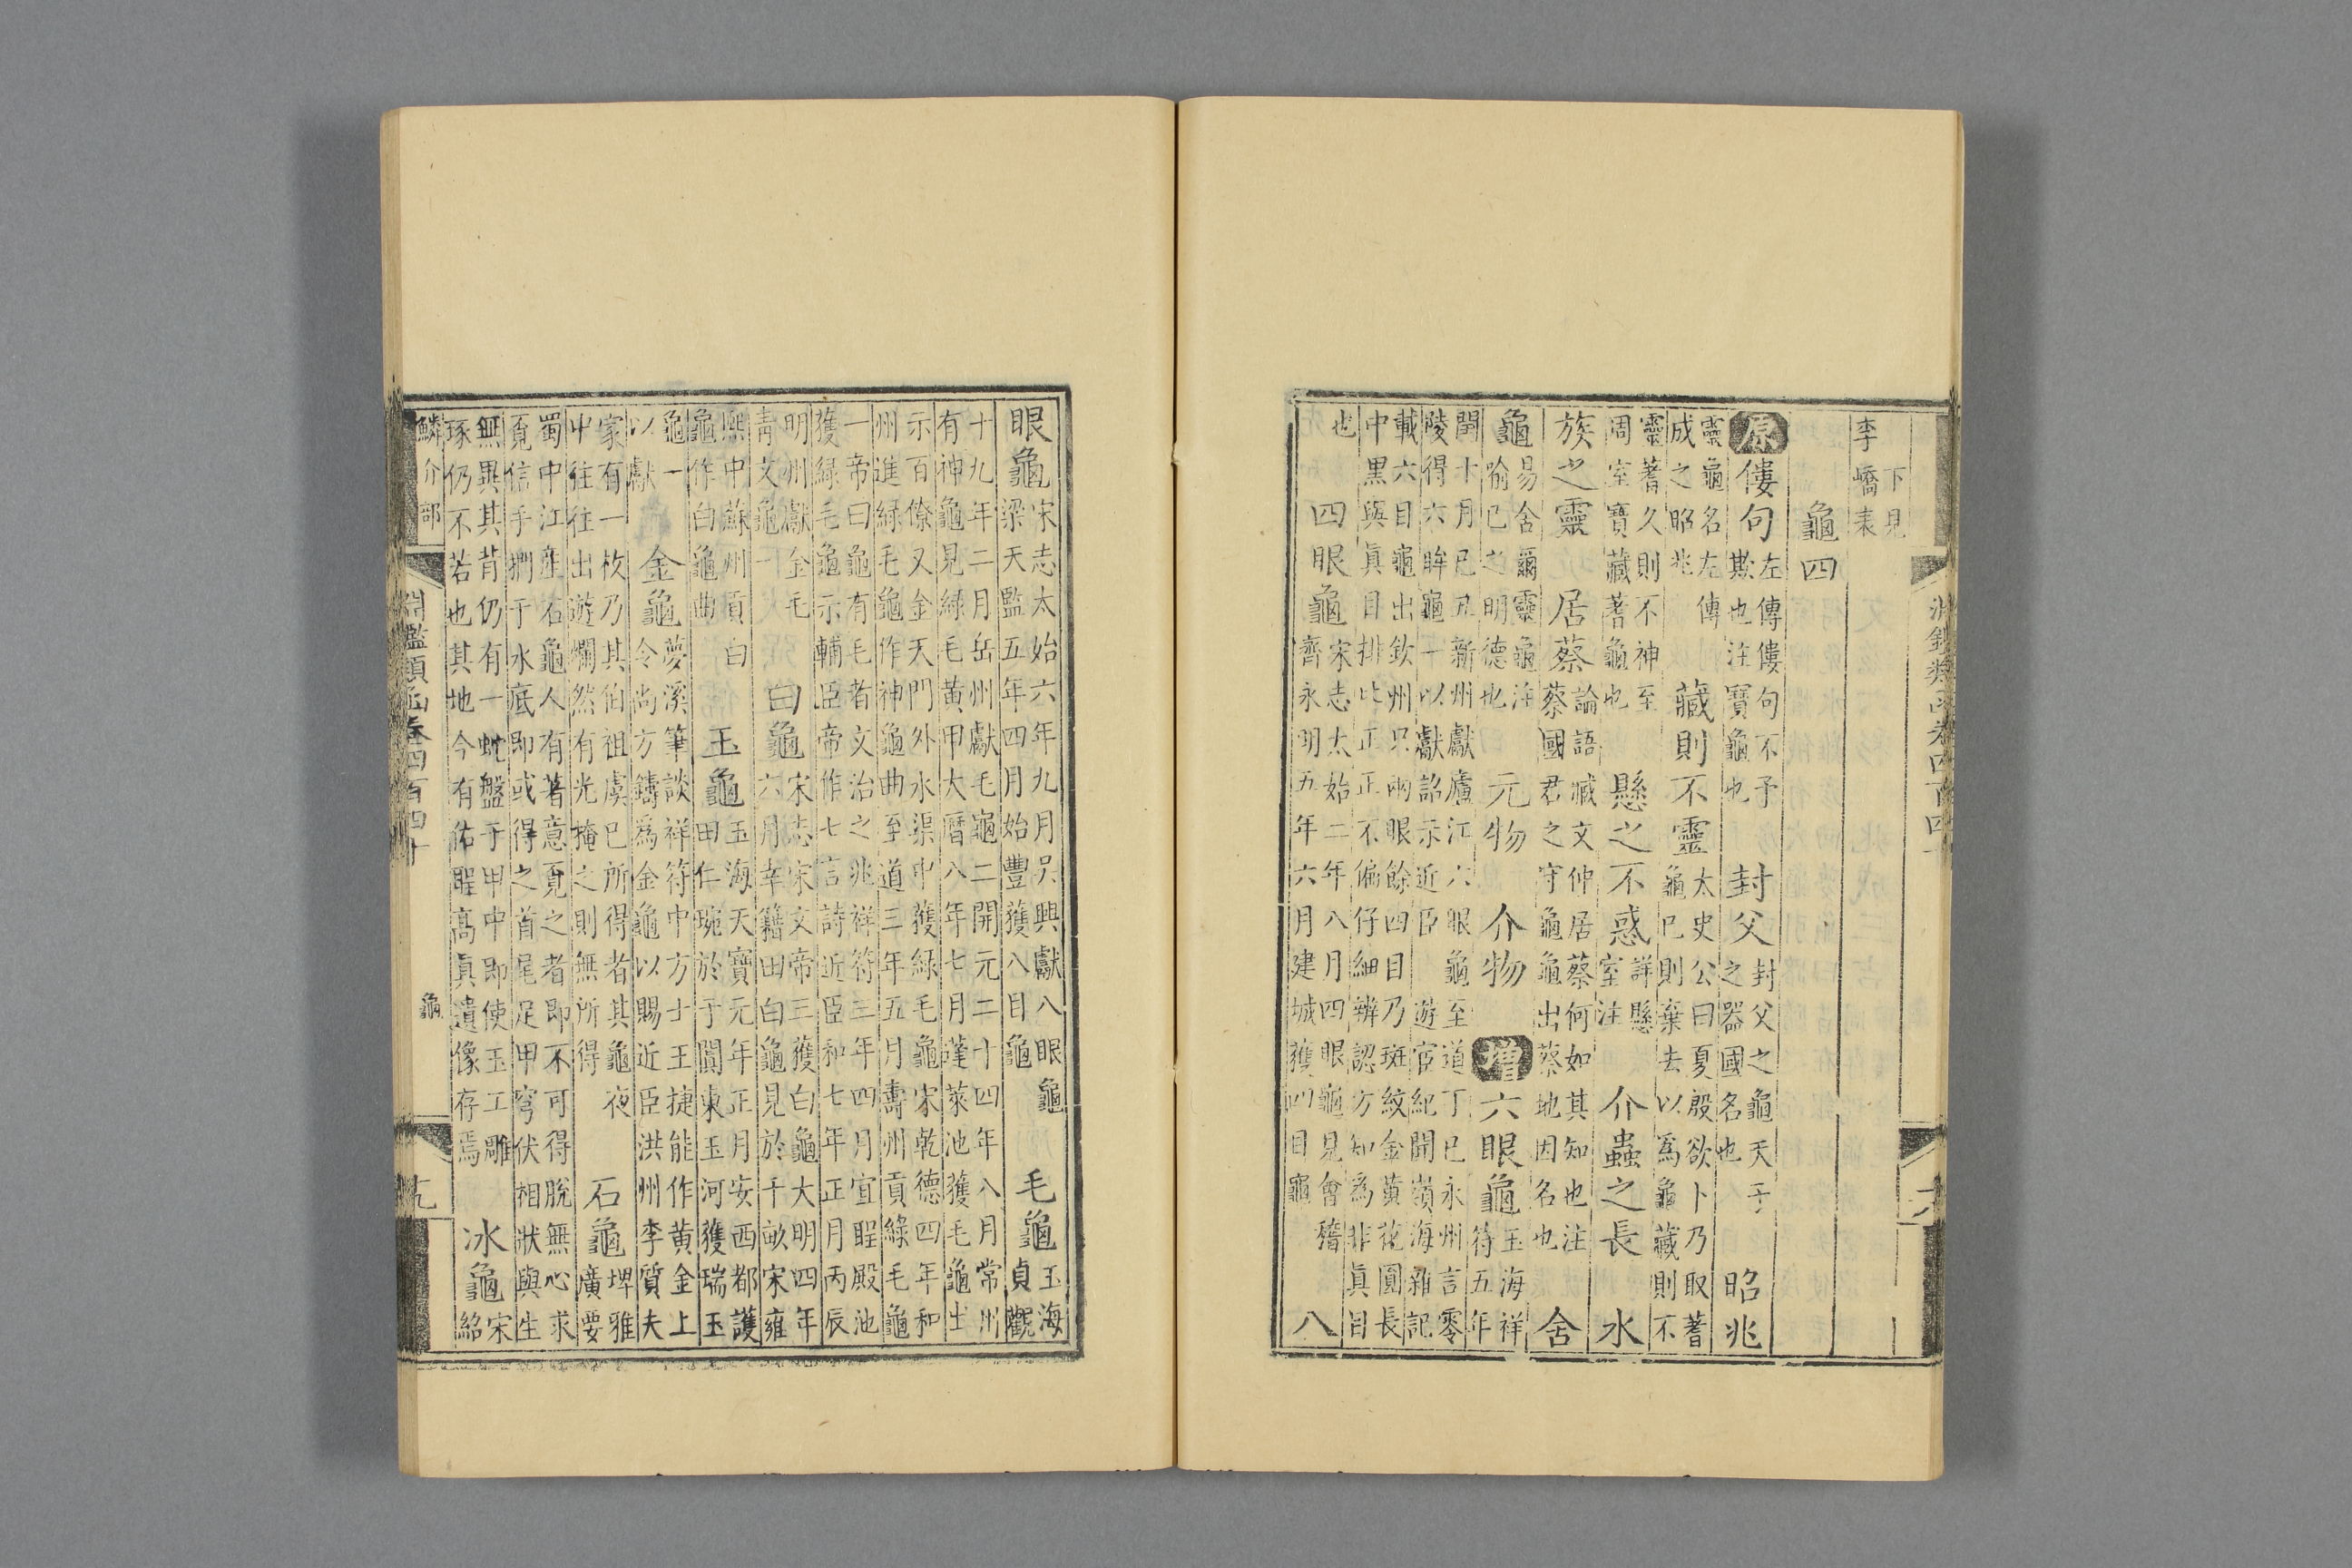 下見
李嶠表
龜四
原僂句左傳僂句不予
欺也注寶龜也
封父封父之龜天子
之器國名也
昭兆
靈龜名左傳
成之昭兆
藏則不靈太史公曰夏殷欲卜乃取蓍
龜已則棄去以爲龜藏則不
靈蓍久則不神至
周室寶藏蓍龜也
懸之不惑詳懸
室注
介蟲之長水
族之靈居蔡論語臧文仲居蔡何如其知也注
蔡國君之守龜龜出蔡地因名也
舍
龜易舍爾靈龜注
喻已之明德也
元物介物增六眼龜玉海祥
符五年
閏十月己丑新州獻廬江六眼龜至道丁巳永州言零
陵得六眸龜一以獻詔示近臣遊宦紀聞嶺海雜記
載六目龜出欽州只兩眼餘四目乃斑紋金黃花圓長
中黑與真目排比正正不偏仔細辨認方知為非真目
也
四眼龜宋志太始二年八月四眼龜見會稽
齊永明五年六月建城獲四目龜
八
眼龜宋志太始六年九月吳興獻八眼龜
梁天監五年四月始豐獲八目龜
毛龜玉海
貞觀
十九年二月岳州獻毛龜二開元二十四年八月常州
有神龜見綠毛黃甲大曆八年七月瑾萊池獲毛龜出
示百僚又金天門外水渠中獲綠毛龜宋乾德四年和
州進綠毛龜作神龜曲至道三年五月壽州貢綠毛龜
一帝曰龜有毛者文治之兆祥符三年四月宜聖殿池
獲綠毛龜示輔臣帝作七言詩近臣和七年正月丙辰
明州獻金毛
青文龜一
白龜宋志宋文帝三獲白龜大明四年
六月幸籍田白龜見於千畝宋雍
熙中蘇州貢白
龜作白龜曲
玉龜玉海天寶元年正月安西都護
田仁琬於于闐東玉河獲瑞玉
龜一
以獻
金龜夢溪筆談祥符中方士王捷能作黃金上
令尚方鑄為金龜以賜近臣洪州李簀夫
家有一枚乃其伯祖虞已所得者其龜夜
中往往出遊爛然有光掩之則無所得
石龜埤雅
廣要
蜀中江產石龜人有著意覓之者即不可得脫無心求
覓信手捫于水底即或得之首尾足甲穹伏相狀與生
無異其背仍有一蛇盤于甲中即使玉工雕
琢仍不若也其地今有佑聖高真遺像存焉
冰龜宋
紹
鱗介部
淵鑑類函卷四百四十
龜